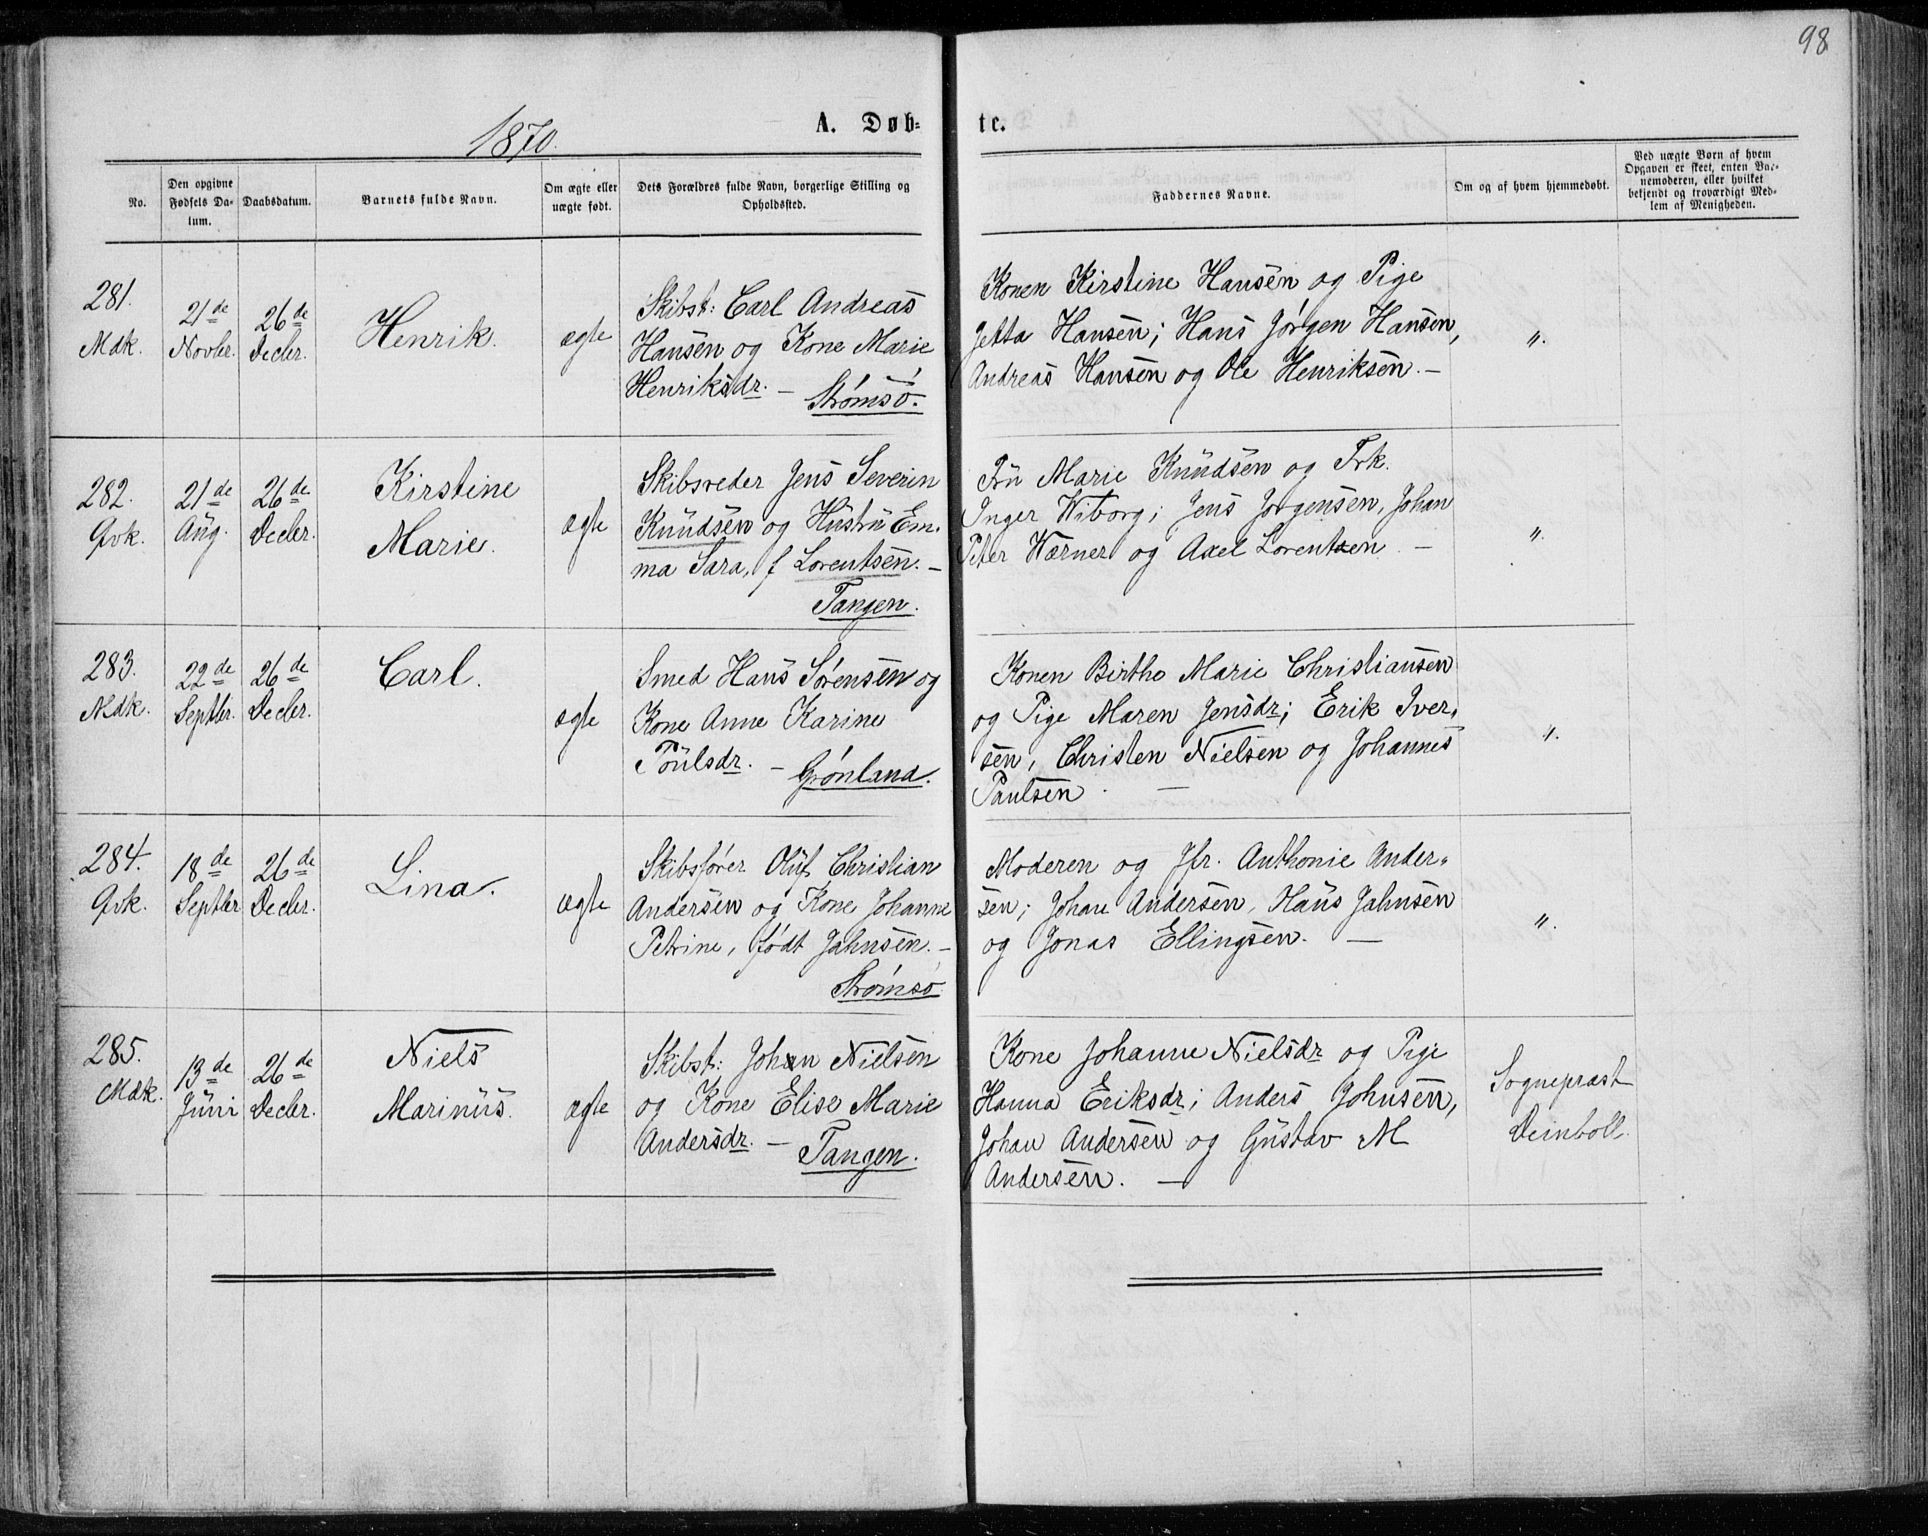 98
1870.
A. Døb-
te.
No.
Den opgivne
Fødsels Da-
tum.
Daabsdatum.
Barnets fulde Navn.
Om ægte eller
uægte født.
Dets Forældres fulde Navn, borgerlige Stilling og
Opholdssted.
Faddernes Navne.
Om og af hvem hjemmedøbt.
Ved uægte Børn af hvem
Opgaven er skeet, enten Bar-
nemoderen, eller hvilket
bekjendt og troværdigt Med-
lem af Menigheden.
281.
Mdk.
21de
Novbr.
26de
Decbr.
Henrik.
ægte
Skibst: Carl Andreas
Hansen og Kone Marie
Henriksdr. —
Strømsø.
Konen Kirstine Hansen og Pige
Jetta Hansen; Hans Jørgen Hansen,
Andreas Hansen og Ole Henriksen. —
".
282.
Qvk.
21de
Aug.
26de
Decbr.
Kirstine
Marie.
ægte
Skibsreder Jens Severin
Knudsen og Hustru Em-
ma Sara, f Lorentsen. —
Tangen.
Fru Marie Knudsen og Frk.
Inger Wiborg; Jens Jørgensen, Johan
Peter Wærner og Axel Lorentzen. —
".
283.
Mdk.
22de
Septbr.
26de
Decbr.
Carl.
ægte
Smed Hans Sørensen og
Kone Anne Karine
Poulsdr. — Grønland.
Konen Birthe Marie Christiansen
og Pige Maren Jensdr; Erik Iver-
sen, Christen Nielsen og Johannes
Paulsen. —
".
284.
Qvk.
18de
Septbr
26de
Decbr.
Lina.
ægte
Skibsfører Oluf Christian
Andersen og Kone Johanne
Petrine, født Jahnsen. —
Strømsø
Moderen og Jfr. Anthonie Ander-
sen; Johan Andersen, Hans Jahnsen
og Jonas Ellingsen. —
".
285.
Mdk.
13de
Juni
26de
Decbr.
Niels
Marinus.
ægte
Skibst: Johan Nielsen
og Kone Elise Marie
Andersdr. —
Tangen.
Kone Johanne Nielsdr og Pige
Hanna Eriksdr; Anders Johnsen,
Johan Andersen og Gustav M
Andersen. —
Sognepræst
Deinboll.